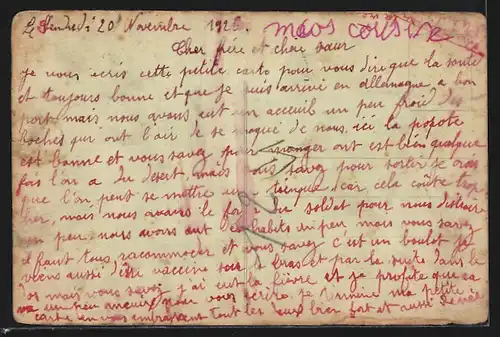 Le Vendredi 20 Novembre 192
Cher frère et chère sœur
Je vous écris cette petite carte pour vous dire que la santé
et toujours bonne et que je suis arrivé en allemagne a bon
port mais nous avons eut un acceuil un peu froid des
Boches qui ont l'air de se moqué de nous, ici la popote
est bonne et vous savez pour manger ont est bien quelque
fois l'on a du desert, mais vous savez pour sortir
que l'on peut se mettre une car cela coûte trop
cher, mais nous avons le du soldat pour nous distraire
un peu, nous avons eut des habits un peu mais vous savez
il faut tous raccommoder et vous savez c'est un boulot je
viens aussi d'être vaccine bras et par la suite dans le
dos mais vous savez j'ai eut la fièvre et je profite que sa
va un peu mieux pour vous écrire. Je termine ma petite
carte en vous embrassant tout les deux bien fort et aussi